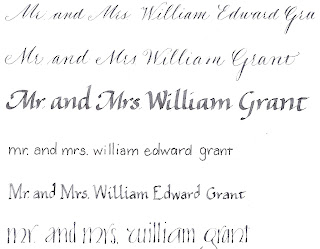 Mr. and Mrs William Edward Gra
Mr. and Mrs William Grant
Mr. and Mrs William Grant
mr. and mrs. william edward grant
Mr. and Mrs. William Edward Grant
mr. and mrs. william grant